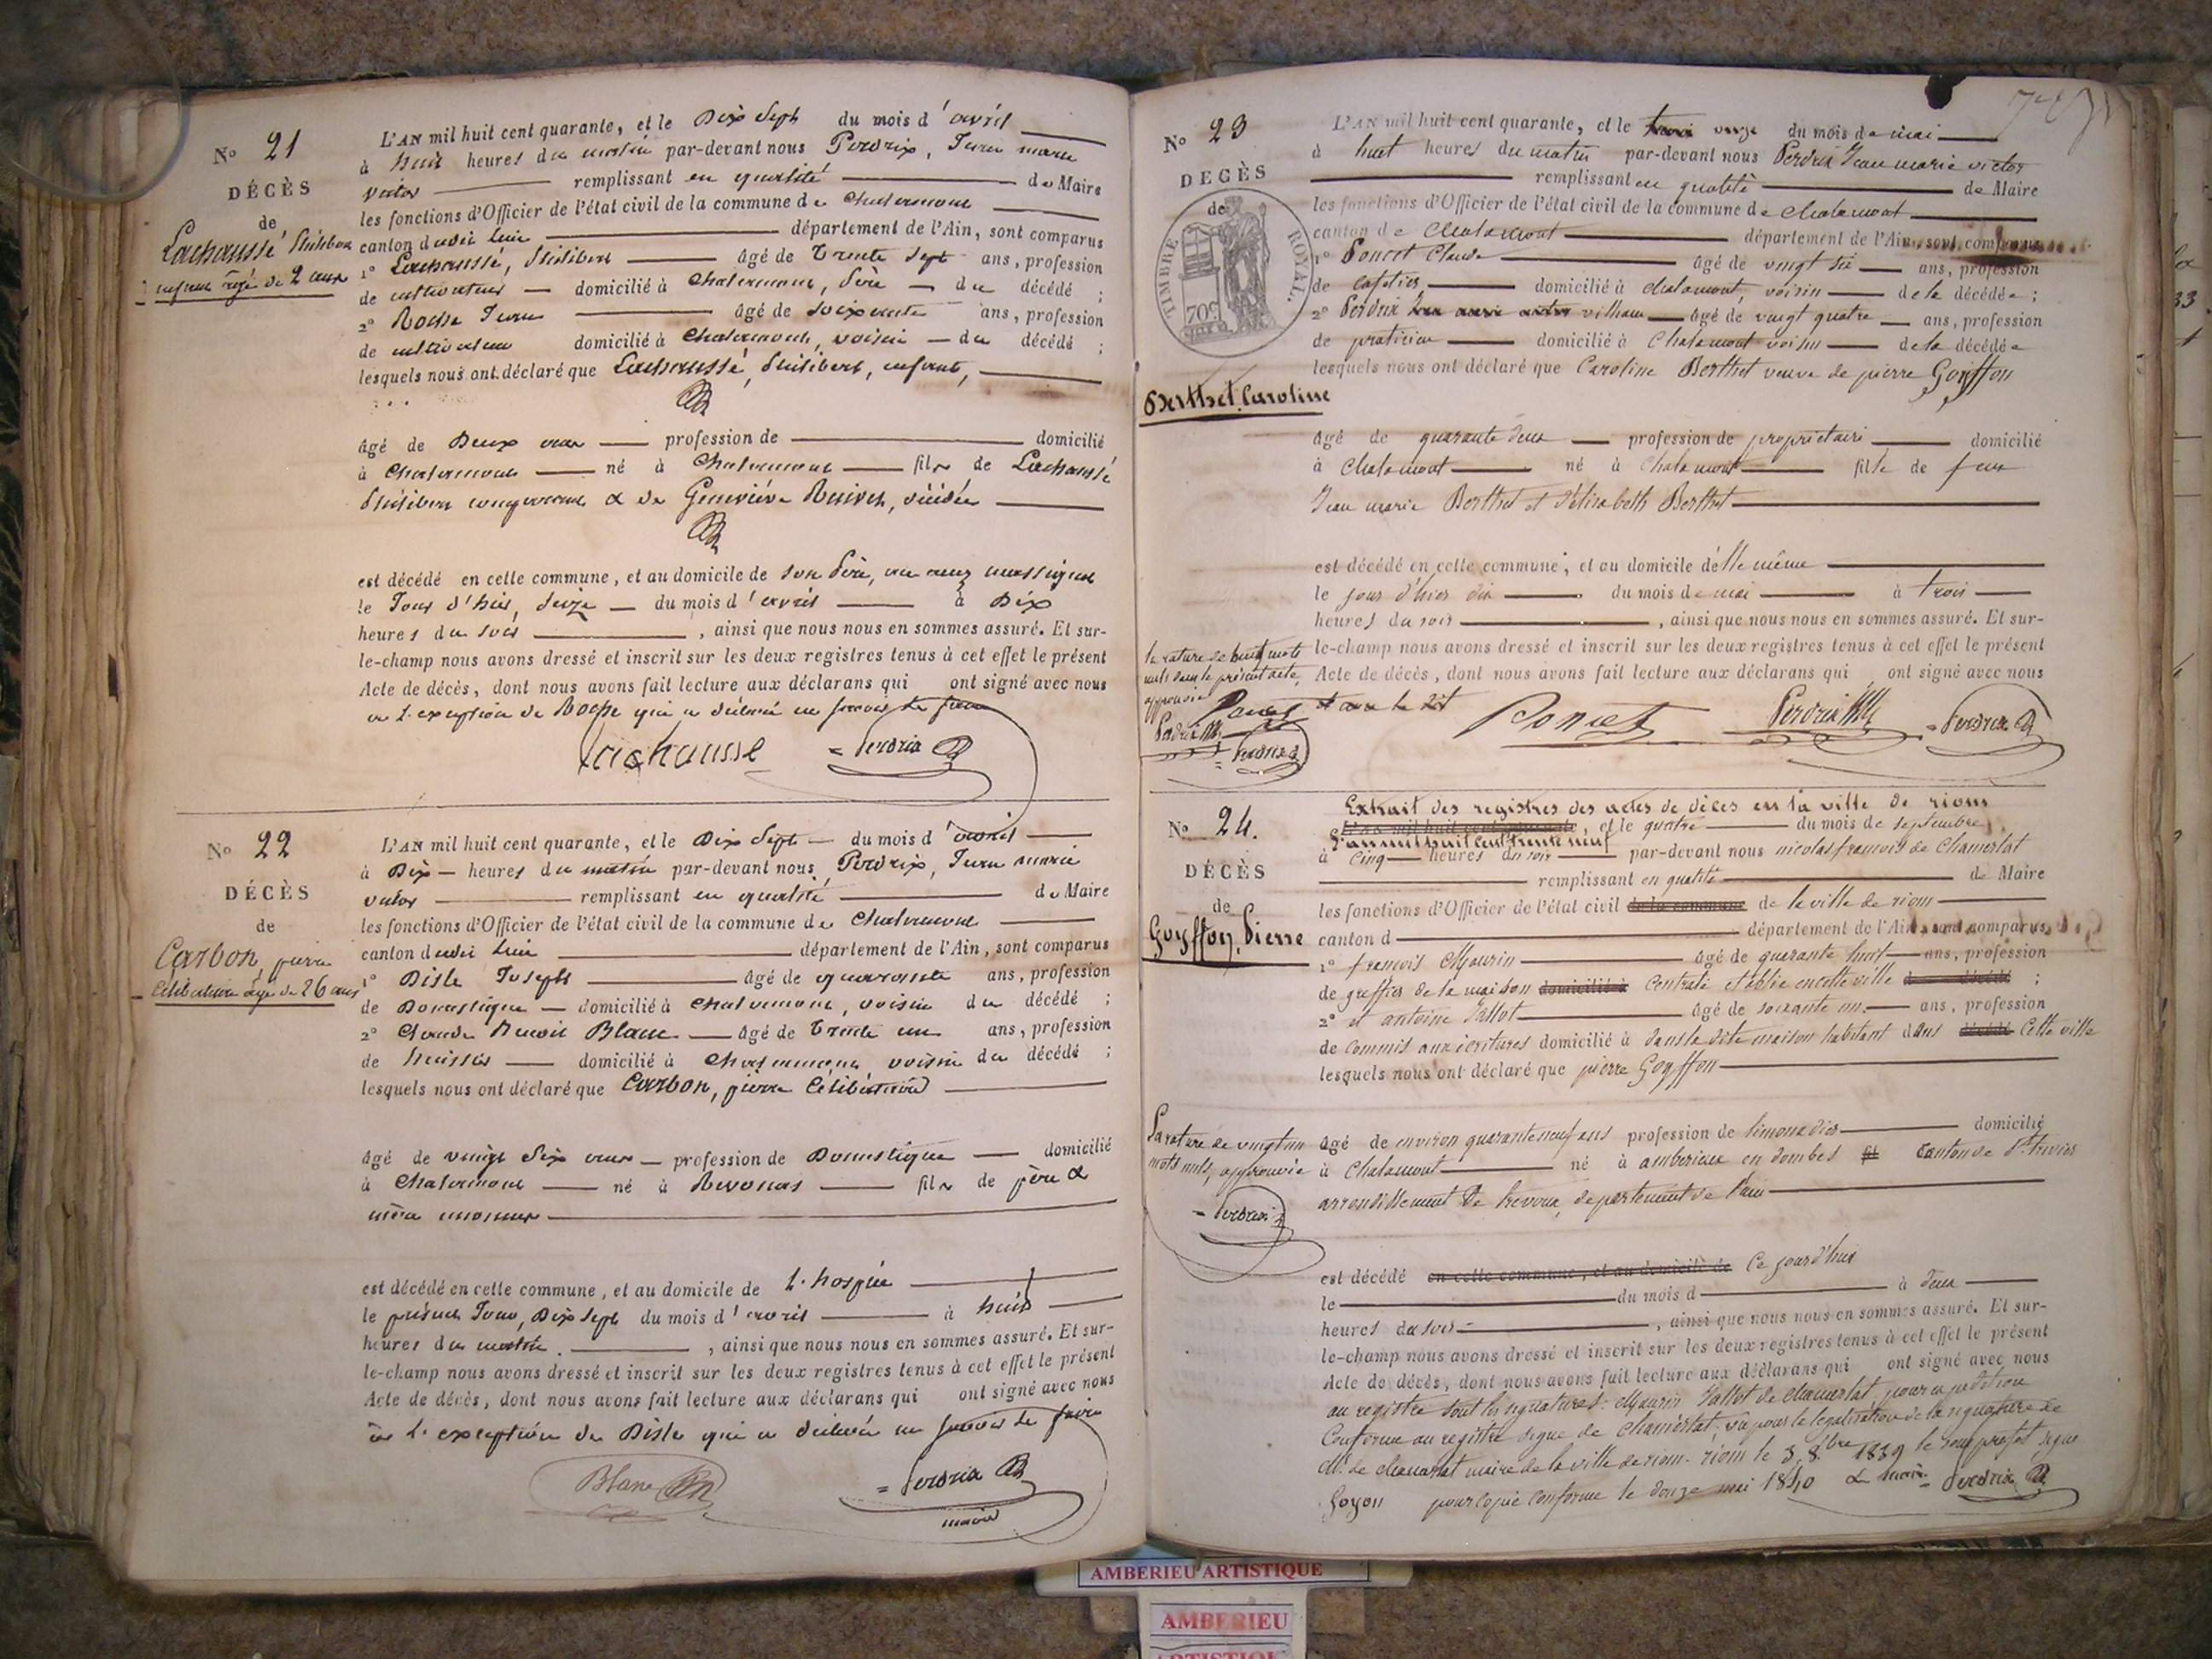 No 21
DÉCÈS
de
Lachaussé Philibert
enfant âgé de 2 ans
L'AN mil huit cent quarante, et le Dix Sept du mois d'avril
à huit heures du matin par-devant nous Perdrix, Jean marie
victor remplissant en qualité de Maire
les fonctions d'Officier de l'état civil de la commune de Chalamont
canton dudit lieu département de l'Ain, sont comparus
1° Lachaussé, Philibert âgé de Trente Sept ans, profession
de cultivateur domicilié à Chalamont, Père du décédé ;
2° Roche Jean âgé de Soixante ans, profession
de cultivateur domicilié à Chalamont, voisin du décédé ;
lesquels nous ont déclaré que Lachaussé, Philibert, enfant,
âgé de Deux ans profession de domicilié
à Chalamont né à Chalamont fils de Lachaussé
Philibert comparant & de Geneviève décédée
est décédé en cette commune, et au domicile de son Père,
le Jour d'hier, Seize du mois d'avril à Dix
heures du soir , ainsi que nous nous en sommes assuré. Et sur-
le-champ nous avons dressé et inscrit sur les deux registres tenus à cet effet le présent
Acte de décès, dont nous avons fait lecture aux déclarans qui ont signé avec nous
à l'exception de Roche qui a déclaré ne savoir le faire
Lachausse Perdrix
No 22
DÉCÈS
de
Carbon, pierre
Célibataire âgé de 26 ans
L'AN mil huit cent quarante, et le Dix Sept du mois d'avril
à Dix heures du matin par-devant nous Perdrix, Jean marie
victor remplissant en qualité de Maire
les fonctions d'Officier de l'état civil de la commune de Chalamont
canton dudit lieu département de l'Ain, sont comparus
1° Disle Joseph âgé de quarante ans, profession
de Domestique domicilié à Chalamont, voisin du décédé ;
2° Claude Benoit Blanc âgé de Trente un ans, profession
de huissier domicilié à Chalamont voisin du décédé ;
lesquels nous ont déclaré que Carbon, pierre Célibataire
âgé de vingt Six ans profession de Domestique domicilié
à Chalamont né à Revonas fils de père &
mère inconnus
est décédé en cette commune, et au domicile de l'hospice
le présent Jour, Dix Sept du mois d'avril à huit
heures du matin , ainsi que nous nous en sommes assuré. Et sur-
le-champ nous avons dressé et inscrit sur les deux registres tenus à cet effet le présent
Acte de décès, dont nous avons fait lecture aux déclarans qui ont signé avec nous
à l'exception de Disle qui a déclaré ne savoir le faire
Blanc Perdrix
maire
No 23
DÉCÈS
de
TIMBRE ROYAL
Berthet Caroline
L'AN mil huit cent quarante, et le onze du mois de mai
à huit heures du matin par-devant nous Perdrix Jean marie victor
remplissant en qualité de Maire
les fonctions d'Officier de l'état civil de la commune de Chalamont
canton de Chalamont département de l'Ain, sont comparus
1° Poncet Claude âgé de vingt six ans, profession
de cafetier domicilié à Chalamont, voisin de la décédée ;
2° Perdrix Jean marie victor villiam âgé de vingt quatre ans, profession
de praticien domicilié à Chalamont voisin de la décédée
lesquels nous ont déclaré que Caroline Berthet veuve de pierre Goyffon
âgé de quarante deux profession de propriétaire domicilié
à Chalamont né à Chalamont fille de feu
Jean marie Berthet et d'élisabeth Berthet
est décédé en cette commune, et au domicile d'elle même
le jour d'hier dix du mois de mai à trois
heures du soir , ainsi que nous nous en sommes assuré. Et sur-
le-champ nous avons dressé et inscrit sur les deux registres tenus à cet effet le présent
Acte de décès, dont nous avons fait lecture aux déclarans qui ont signé avec nous
la rature de huit mots
nuls dans le présent acte,
approuvée
Poncet
Perdrix
Perdrix
Poncet Perdrix Perdrix
No 24.
DÉCÈS
de
Goyffon, Pierre
Extrait des registres des actes de décès en la ville de riom
L'an mil huit cent quarante, et le quatre du mois de septembre
L'an mil huit cent trente neuf
à cinq heures du soir par-devant nous nicolas francois de Chamerlat
remplissant en qualité de Maire
les fonctions d'Officier de l'état civil de la commune de la ville de riom
canton d département de l'Ain, sont comparus
1° francois Maurin âgé de quarante huit ans, profession
de greffier de la maison domicilié à Centrale établie en cette ville du décédé ;
2° et antoine Tallot âgé de soixante un ans, profession
de commis aux écritures domicilié à dans la dite maison habitant dans décédé cette ville
lesquels nous ont déclaré que pierre Goyffon
La rature de vingt un
mots nuls, approuvée
Perdrix
âgé de environ quarante neuf ans profession de limonadier domicilié
à Chalamont né à amberieux en dombes et Canton de St trivier
arrondissement de trevoux, departement de l'ain
est décédé en cette commune, et au domicile de Ce jourd'hui
le du mois d à deux
heures du soir , ainsi que nous nous en sommes assuré. Et sur-
le-champ nous avons dressé et inscrit sur les deux registres tenus à cet effet le présent
Acte de décès, dont nous avons fait lecture aux déclarans qui ont signé avec nous
au registre sont les signatures: Maurin Tallot de Chamerlat. pour expédition
Conforme au registre signé de Chamerlat, vu pour la légalisation de la signature de
Mr. de Chamerlat maire de la ville de riom. riom le 3 8bre 1839 le sous préfet signé
Goyon pour copie conforme le douze mai 1840 Le maire Perdrix
AMBERIEU ARTISTIQUE
AMBERIEU
ARTISTIQUE